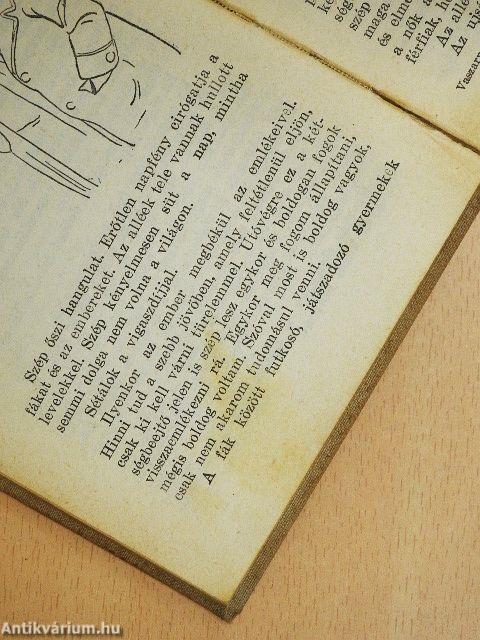 Szép őszi hangulat. Erőtlen napfény cirógatja a
fákat és az embereket. Az alléek tele vannak hullott
levelekkel. Szép kényelmesen süt a nap, mintha
semmi dolga nem volna a világon.
Sétálok a vigaszdíjjal.
Ilyenkor az ember megbékül az emlékeivel.
Hinni tud a szebb jövőben, amely feltétlenül eljön,
csak ki kell várni türelemmel. Utóvégre ez a két-
ségbeejtő jelen is szép lesz egykor és boldogan fogok
visszaemlékezni rá. Egykor meg fogom állapítani,
mégis boldog voltam. Szóval most is boldog vagyok,
csak nem akarom tudomásul venni.
A fák között futkosó, játszadozó gyermekek
szép
maga
és elme
a nők a
férfiak, h
Az allé
Az ujs
Vaszary
Antikvárium.hu